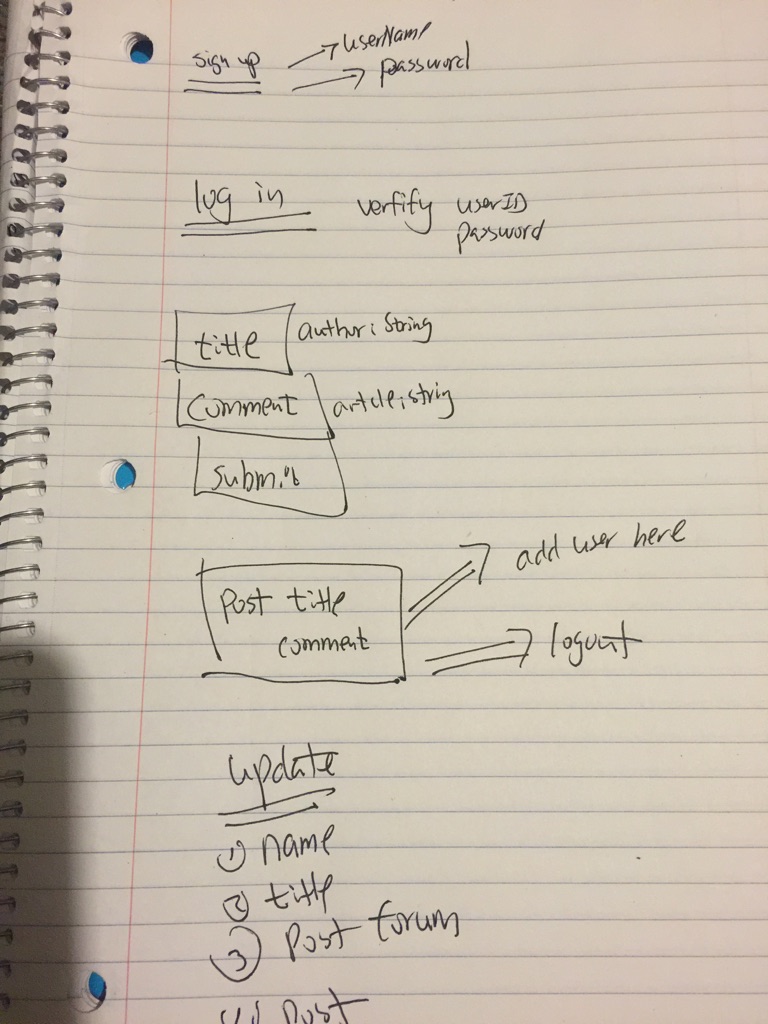 sign up
userName
password
log in
verfify userID
password
title
author: String
comment
article: string
submit
post title
comment
add user here
logout
update
1 name
2 title
3 post forum
post